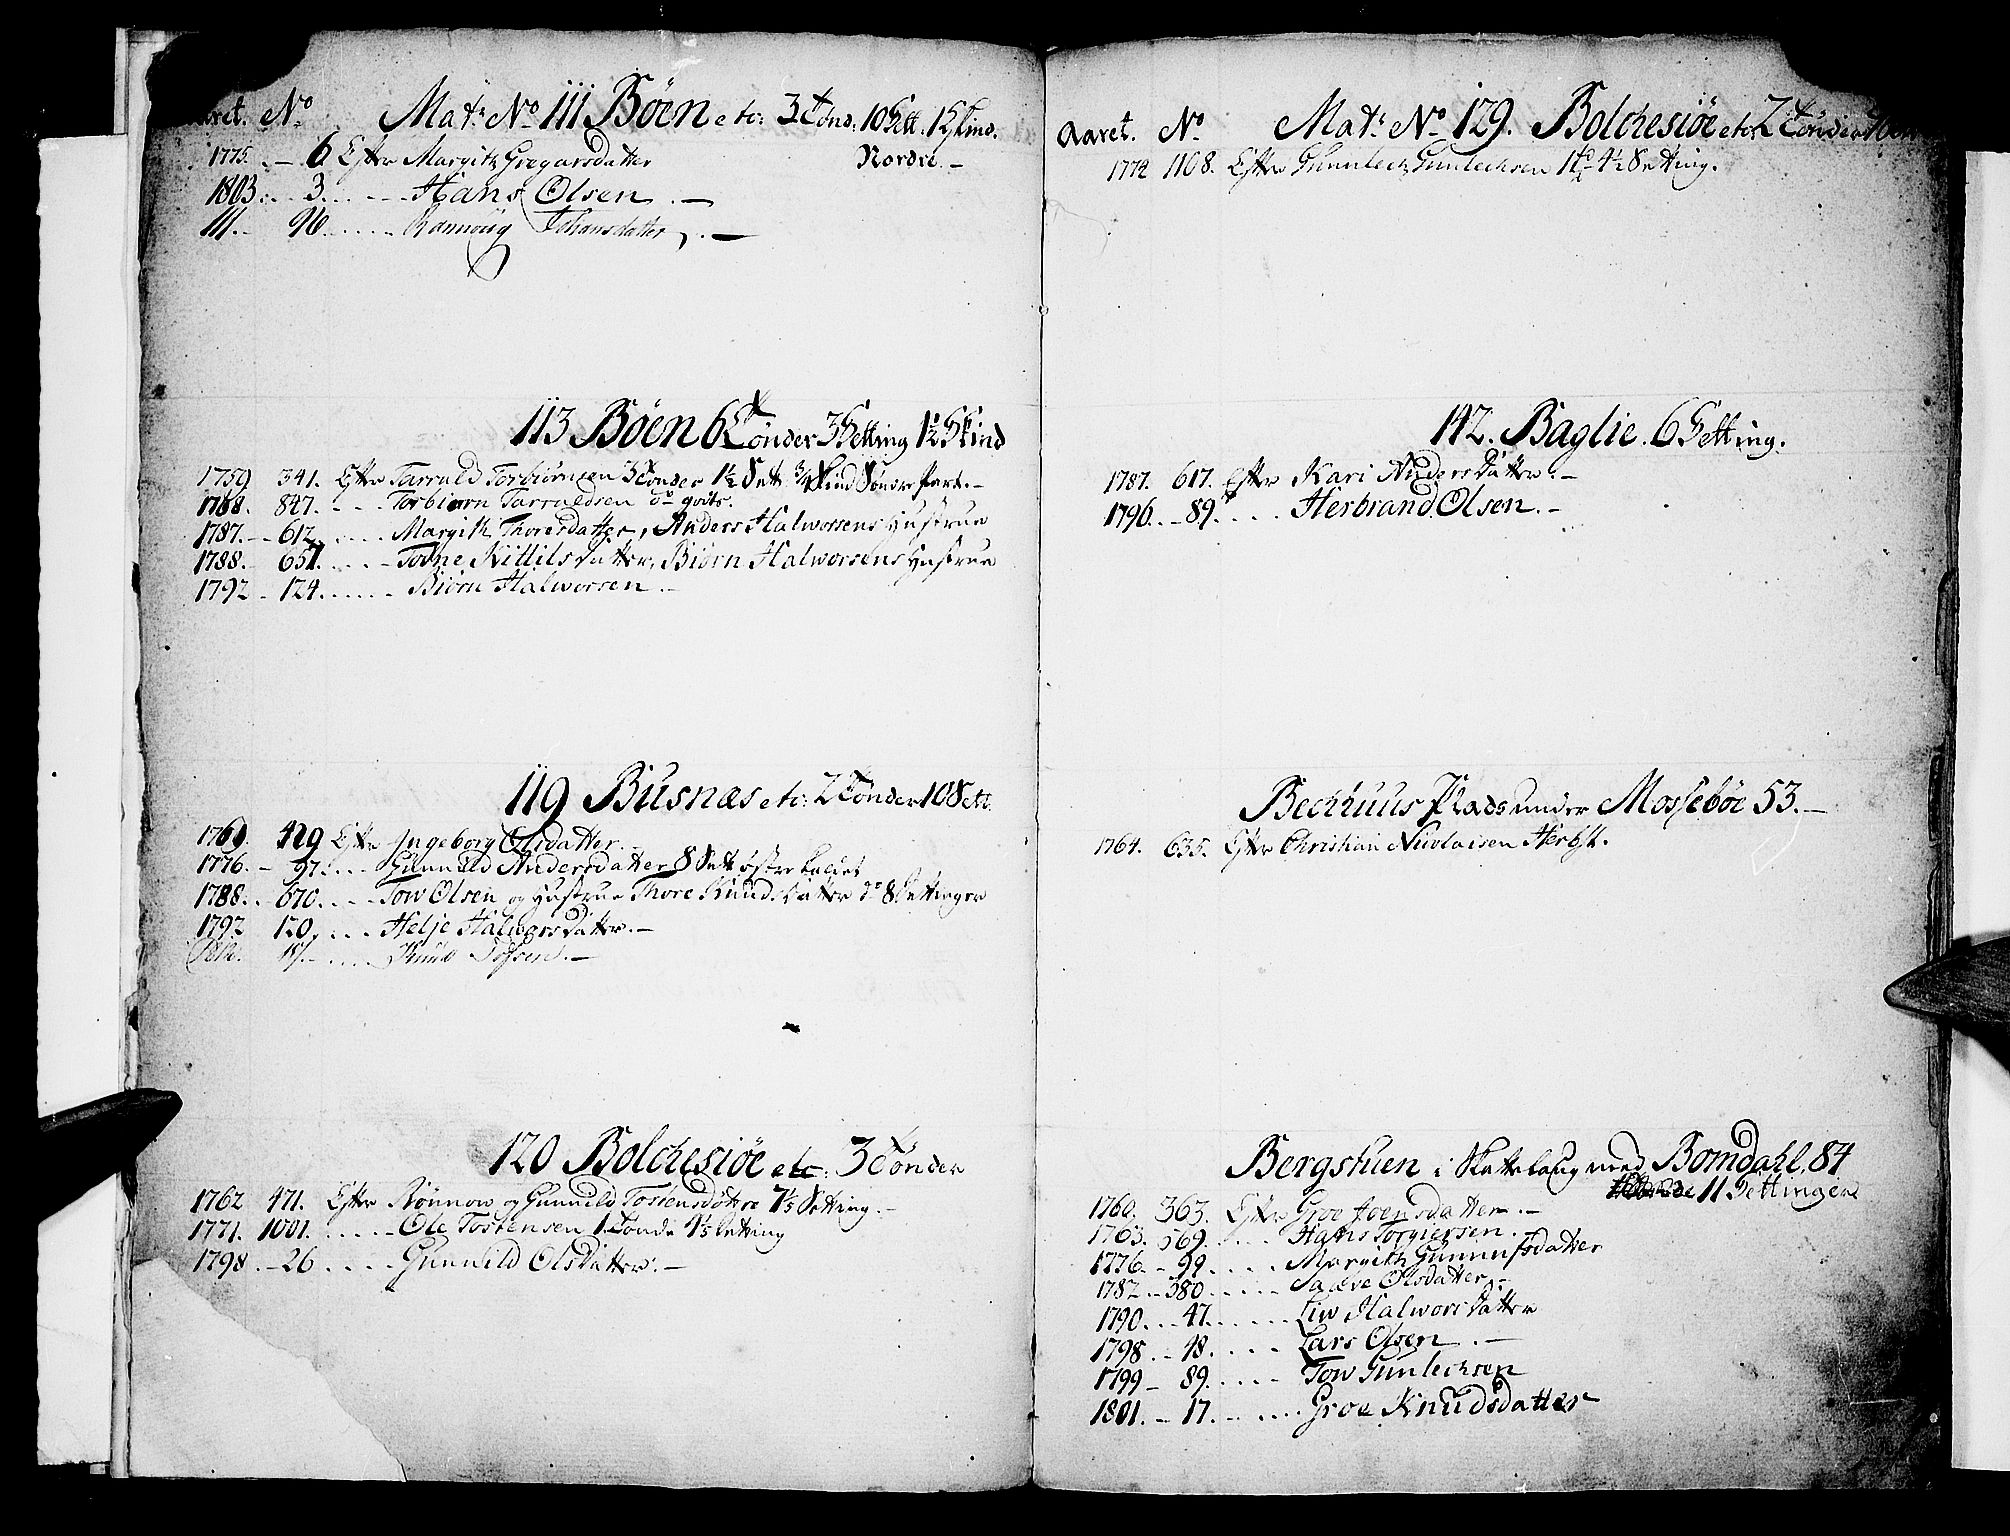 Aaret. No Matr No 111 Böen etc: 3 Tönd. 10 Sett. 1 Skind.
1775. - 6 Efter Margith Gregarsdatter Nordre. -
1803. . . 3. . . . - Hans Olsen . -
111. - 96. . . . . . Rannöig Johansdatter . -
113 Böen 6 Tönder 3 Setting 1½ Skind
1759 341. Efter Tarrald Torbiörnsen 3 Tönder 1½ Sett: 3/4 Skind Söndre Part. -
1768. 847. - - - Torbiörn Tarraldsen do gods.
1787. - - 612. . . . . . Margith Thoresdatter, Anders Halworsens Hustrue
1788. - 651. . . . . - Tone Kittilsdatter, Biörn Halworsens Hustrue
1792 - 124. . . . . . - Biörn Halworsen. -
119 Busnæs etc: 2 Tönder 10 Sett.
1761. 429 Efter Ingeborg Olsdatter. -
1776. - 97. . . . Gunnild Andersdatter 8 Sett östre
1788. . 670. . . . - Tow Olsen og Hustrue Thore Knudsdatter do 8 Settinger
1792 120. . . . Helje Halworsdatter. -
1812. 18. - . . . . Knud -
120 Bolchesiöe etc: 3 Tönder
1762 471. Efter Rönnow og Gunnild Tostensdöttre 7½ Setting. -
1771. 1001. . . . . . - Ole Tostensen 1. Tönde 1½ Setting
1798 . - 26 . . . . . Gunnild Olsdatter. -
Aaret. No Matr No 129. Bolchesiöe etc: 2 Tönder
1774 1108. Efter Gunnlech Gunlechsen 1 4½ Setting.
142. Baglie. 6 Setting.
1787. 617. Efter Kari Andersdatter. -
1796. . - 89. . . . . Herbrand Olsen. -
Bechhuus Plads under Mosseböe 53. -
1764. 635. Efter Christian Nicolaisen Herbst.
Bergstuen i Skattelaug med Bomdahl. 84
11 Settinger
1760. 363. Efter Groe Joensdatter. -
1763. 569. . . . . Hans Torgiersen.
1776. - 99. . . . . Margith Gunnufsdatter
1782. - 380. . . . . . Saave Olsdatter. -
1790. . . 47. . . . . . . Liw Halworsdatter
1798 . - 48. . . . . Lars Olsen . -
1799 - 89. . . . . . Tow Gunlechsen
1801. - 17. - . . . . . Groe Knudsdatter